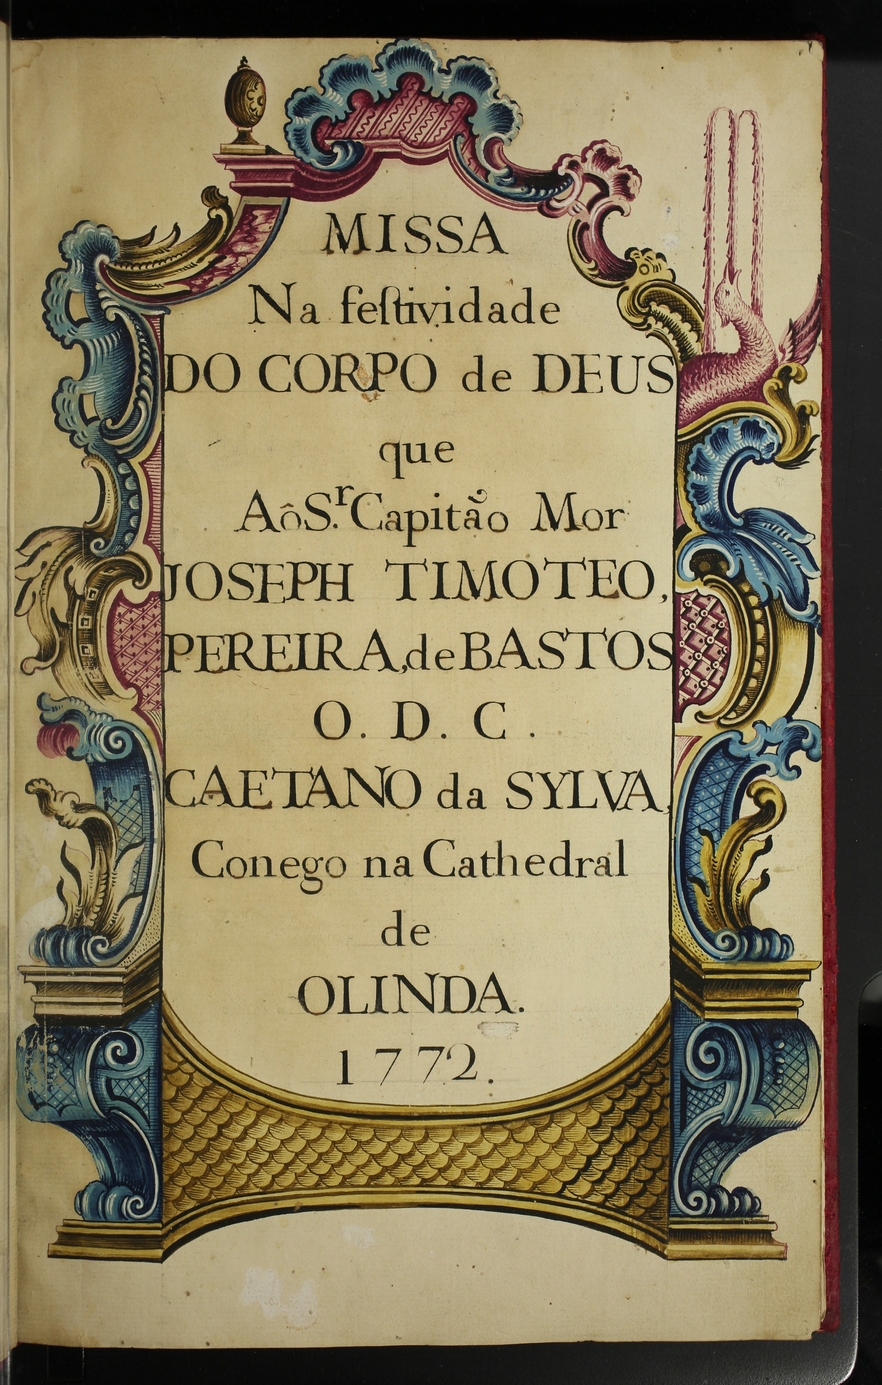 MISSA
Na feſtividade
DO CORPO de DEUS
que
AôS.r Capitão Mor
JOSEPH TIMOTEO,
PEREIRA,de BASTOS
O. D. C.
CAETANO da SYLVA,
Conego na Cathedral
de
OLINDA.
1772.